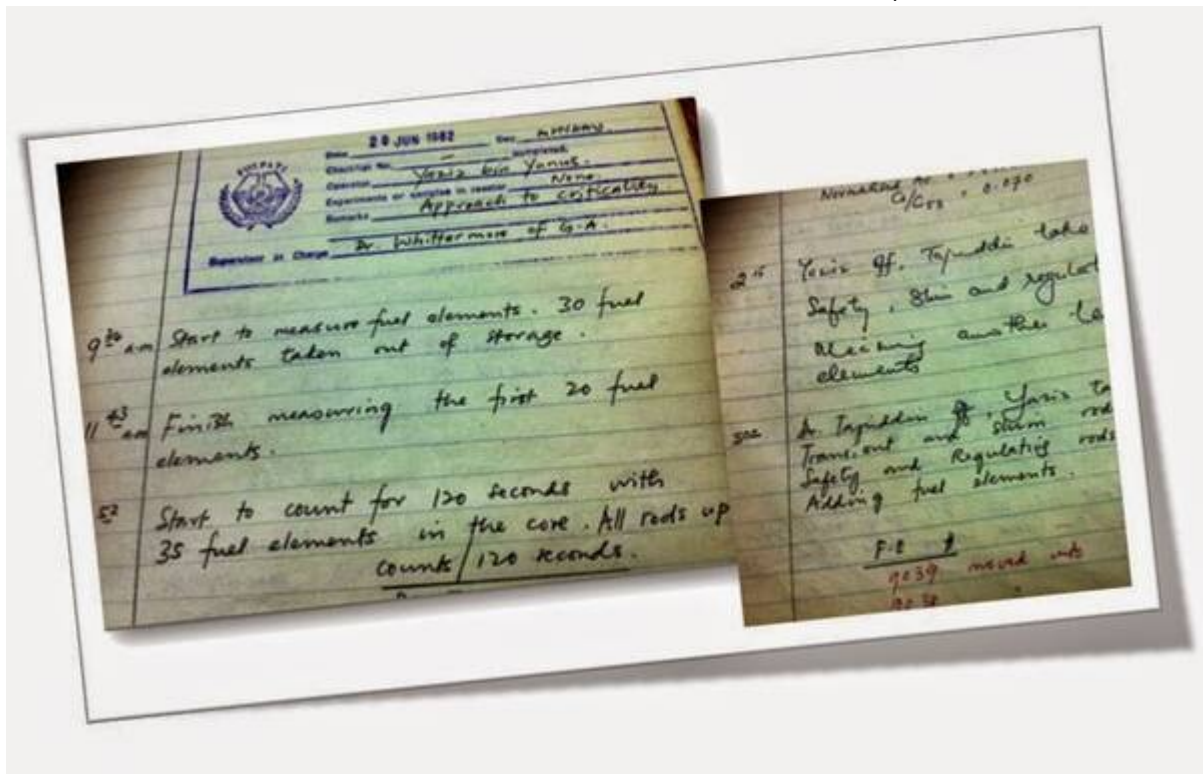 Date 28 JUN 1982 Day Monday
Checklist No. - completed.
Operator Yaziz bin Yunus.
Experiments or samples in reactor None.
Remarks Approach to criticality
Dr. Whittermore of G.A.
Supervisor in Charge
9 30 am Start to measure fuel elements. 30 fuel
elements taken out of storage.
11 43 am Finish measuring the first 20 fuel
elements.
52 Start to count for 120 seconds with
35 fuel elements in the core. All rods up
counts/120 seconds.
Normalized
C/C53 = 0.070
2 15 Yaziz off. Tajuddin take
Safety, Shim and regulat
another
elements
5 02 A. Tajuddin off, Yaziz ta
Transient and Shim rod
Safety and Regulating rods
Adding fuel elements.
F.E #
9039 moved into